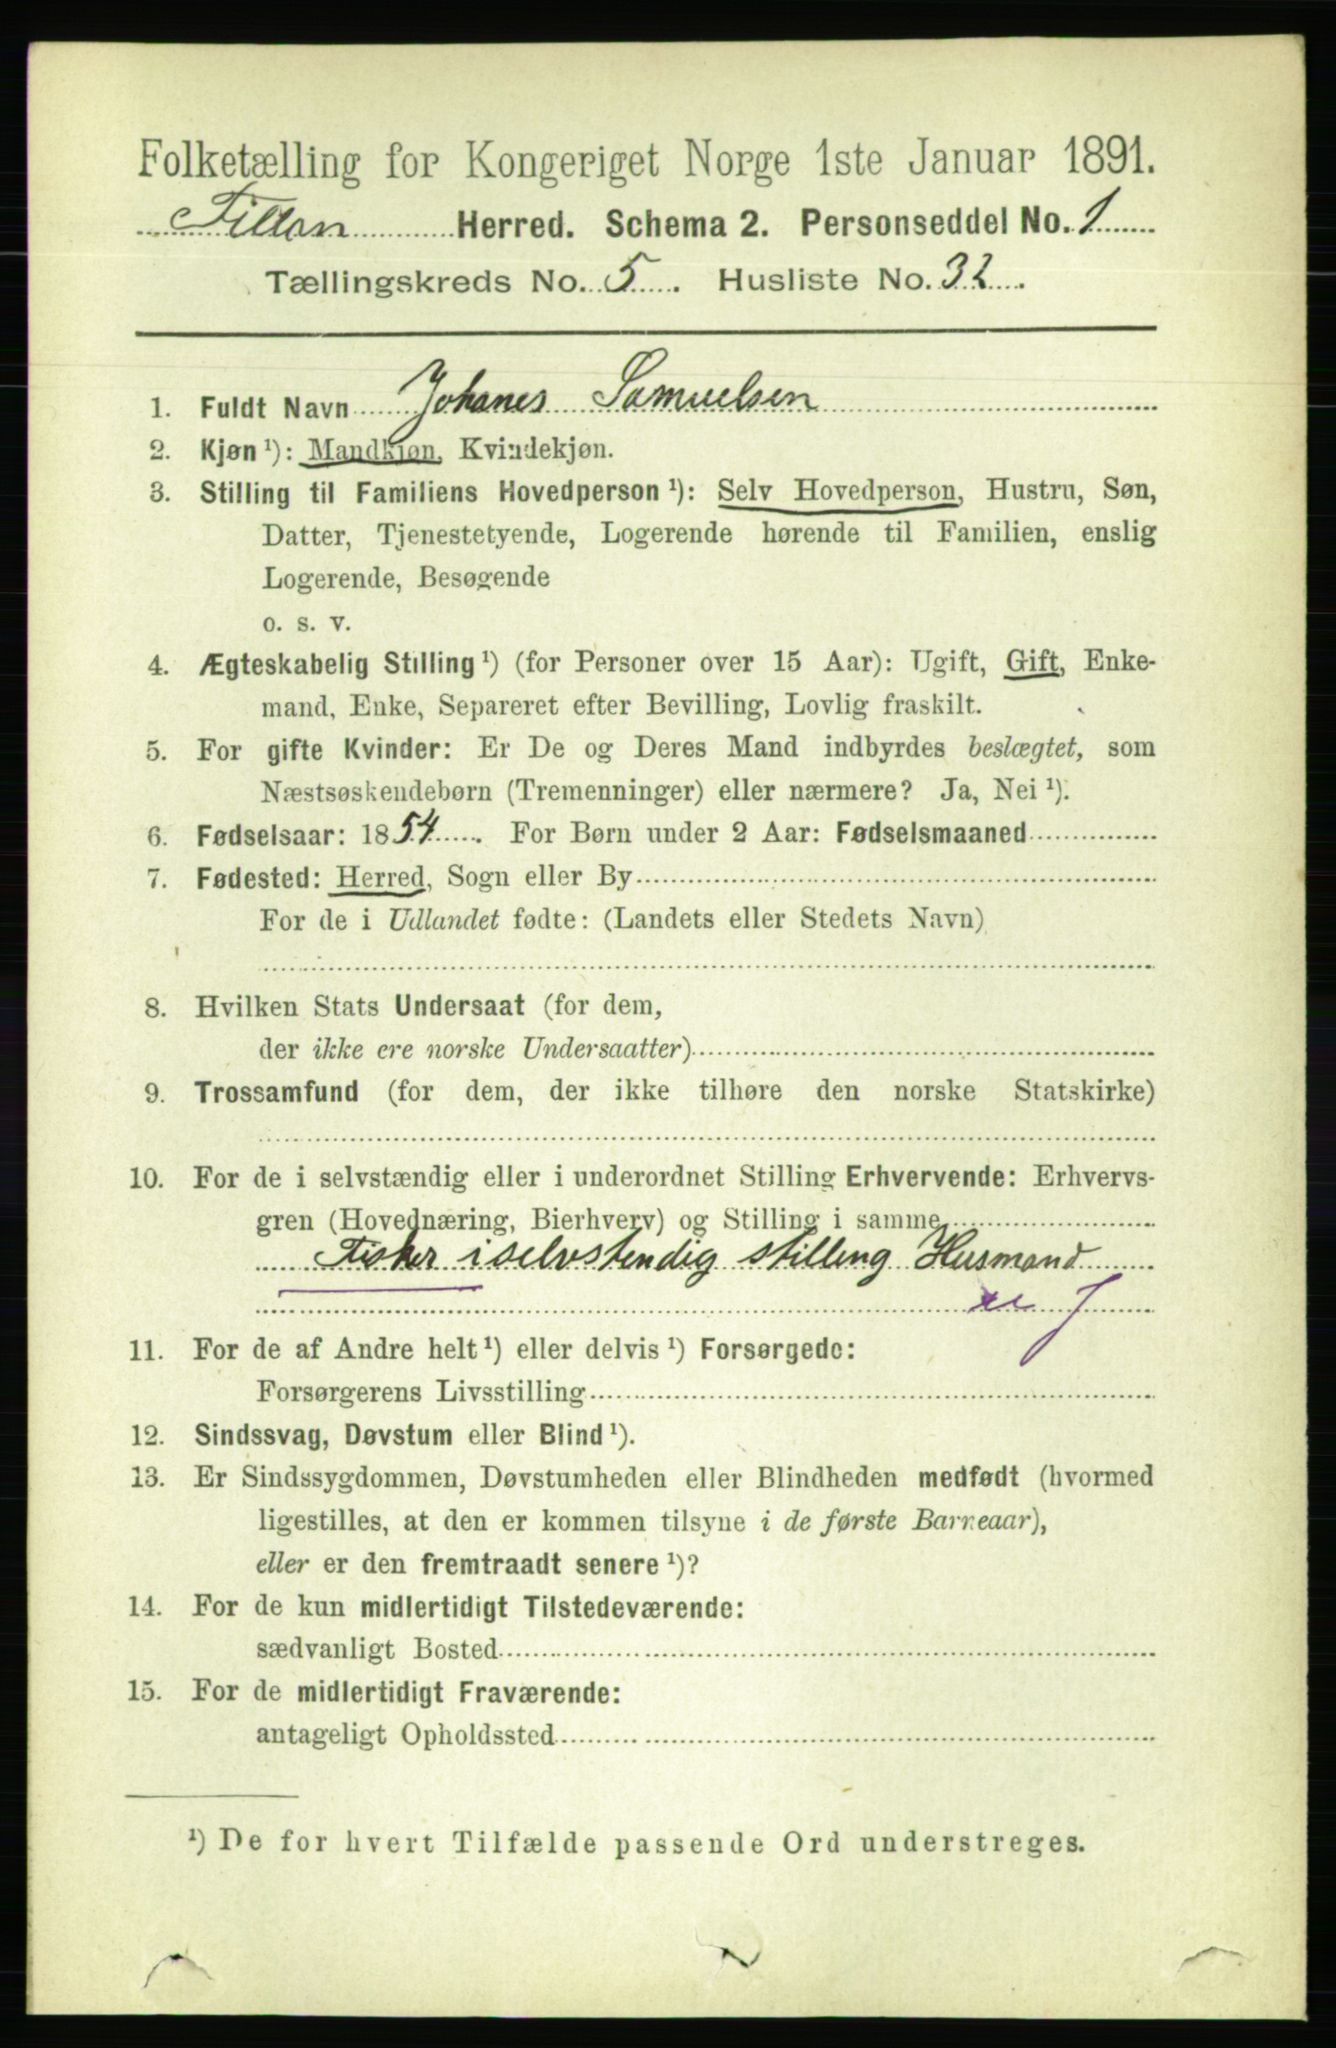 Folketælling for Kongeriget Norge 1ste Januar 1891.
Fillan Herred. Schema 2. Personseddel No. 1
Tællingskreds No. 5. Husliste No. 32.
1. Fuldt Navn Johanes Samuelsen
2. Kjøn ¹): Mandkjøn, Kvindekjøn.
3. Stilling til Familiens Hovedperson ¹): Selv Hovedperson, Hustru, Søn,
Datter, Tjenestetyende, Logerende hørende til Familien, enslig
Logerende, Besøgende
o. s. v.
4. Ægteskabelig Stilling ¹) (for Personer over 15 Aar): Ugift, Gift, Enke-
mand, Enke, Separeret efter Bevilling, Lovlig fraskilt.
5. For gifte Kvinder: Er De og Deres Mand indbyrdes beslægtet, som
Næstsøskendebørn (Tremenninger) eller nærmere? Ja, Nei ¹).
6. Fødselsaar: 1854. For Børn under 2 Aar: Fødselsmaaned
7. Fødested: Herred, Sogn eller By
For de i Udlandet fødte: (Landets eller Stedets Navn)
8. Hvilken Stats Undersaat (for dem,
der ikke ere norske Undersaatter)
9. Trossamfund (for dem, der ikke tilhøre den norske Statskirke)
10. For de i selvstændig eller i underordnet Stilling Erhvervende: Erhvervs-
gren (Hovednæring, Bierhverv) og Stilling i samme
Fisker i selvstendig stilling Husmand
11. For de af Andre helt ¹) eller delvis ¹) Forsørgede:
Forsørgerens Livsstilling
12. Sindssvag, Døvstum eller Blind ¹).
13. Er Sindssygdommen, Døvstumheden eller Blindheden medfødt (hvormed
ligestilles, at den er kommen tilsyne i de første Barneaar),
eller er den fremtraadt senere ¹)?
14. For de kun midlertidigt Tilstedeværende:
sædvanligt Bosted
15. For de midlertidigt Fraværende:
antageligt Opholdssted
¹) De for hvert Tilfælde passende Ord understreges.